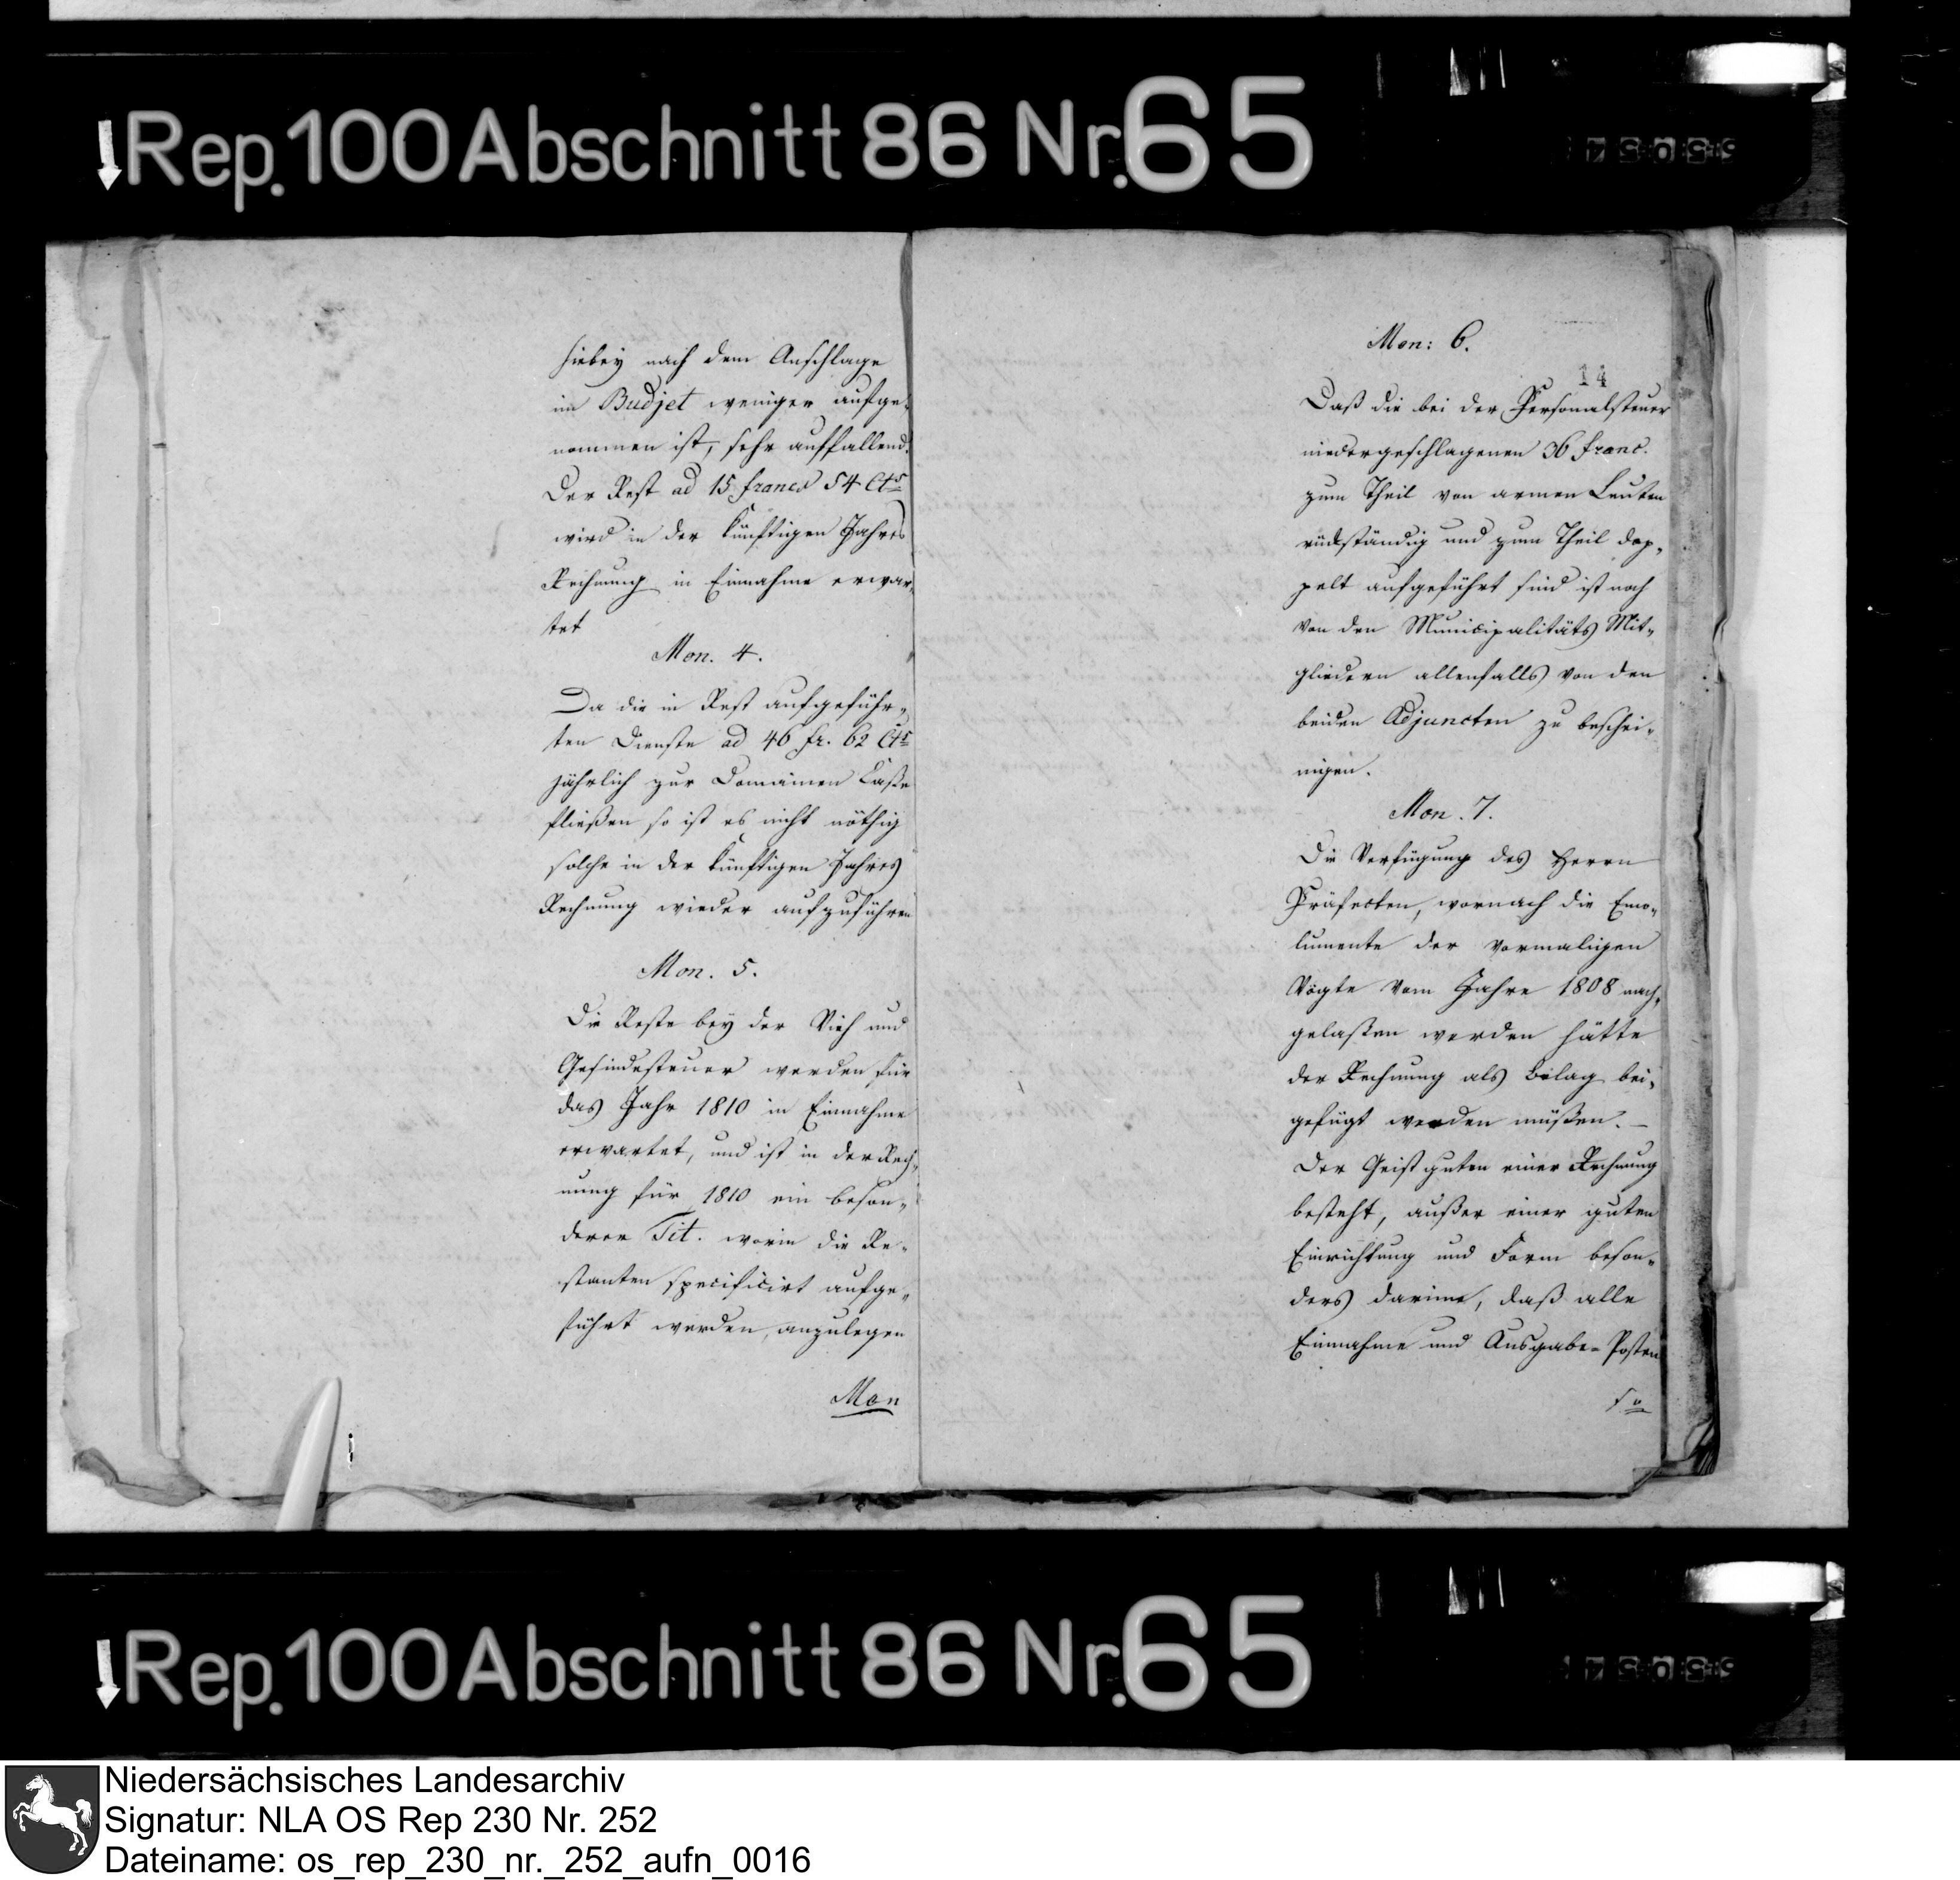 Rep. 100 Abschnitt 86 Nr. 65
hiebey nach dem Anschlage
im Budjet weniger aufge-
nommen ist, sehr auffallend.
Der Rest ad 15 francs 54 Cts
wird in der künftigen Jahres
Rechnung in Einnahme erwar-
tet
Mon. 4.
Da die in Rest aufgeführ-
ten Dienste ad 46 fr. 62 Cts
jährlich zur Domainen Casse
fließen so ist es nicht nöthig
solche in der künftigen Jahres
Rechnung wieder aufzuführen
Mon. 5.
Die Reste bey der Vieh und
Gesindesteuer werden für
das Jahr 1810 in Einnahme
erwartet, und ist in der Rech-
nung für 1810 ein beson-
derer Tit. worin die Re-
stanten specificirt aufge-
führt werden, anzulegen
Mon
Mon: 6.
14
Daß die bei der Personalsteuer
niedergeschlagenen 36 franc.
zum Theil von armen Leuten
rückständig und zum Theil dop-
pelt aufgeführt sind ist noch
von den Municipalitäts Mit-
gliedern allenfalls von den
beiden Adjuncten zu beschei-
nigen.
Mon. 7.
Die Verfügung des Herrn
Präfecten, wornach die Emo-
lumente der vormaligen
Vögte vom Jahre 1808 nach-
gelaßen werden hätte
der Rechnung als Belag bei-
gefügt werden müßen. –
Der Geist guten einer Rechnung
besteht, außer einer guten
Einrichtung und Form beson-
ders darinn, daß alle
Einnahme und Ausgabe-Posten
Rep. 100 Abschnitt 86 Nr. 65
Niedersächsisches Landesarchiv
Signatur: NLA OS Rep 230 Nr. 252
Dateiname: os_rep_230_nr._252_aufn_0016